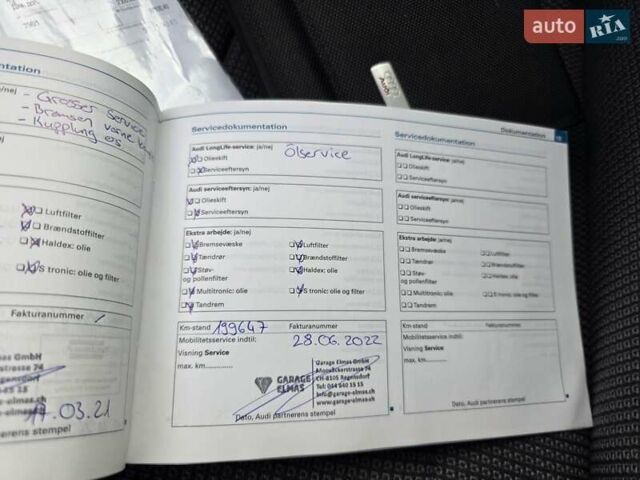 auto RIA
Audi
mentation
nej
- Grosser Service
- Bremsen vorne
- Kupplung
Luftfilter
Brændstoffilter
Haldex: olie
S tronic: olie og filter
Fakturanummer
Elmas GmbH
rstrasse 74
Regensdorf
40 15 15
-elmas.ch
17.03.21
rtnerens stempel
Servicedokumentation
Audi LongLife-service: ja/nej
Olieskift
Serviceeftersyn
Ölservice
Audi serviceeftersyn: ja/nej
Olieskift
Serviceeftersyn
Ekstra arbejde: ja/nej
Bremsevæske
Luftfilter
Tændrør
Brændstoffilter
Støv-
og pollenfilter
Haldex: olie
Multitronic: olie
S tronic: olie og filter
Tandrem
Km-stand 199647
Fakturanummer
Mobilitetsservice indtil: 28.06.2022
Visning Service
max. km
GARAGE
ELMAS
Garage Elmas GmbH
CH-8105 Regensdorf
Tel: 044 840 15 15
info@garage-elmas.ch
www.garage-elmas.ch
Dato, Audi partnerens stempel
Dokumentation
Servicedokumentation
Audi LongLife-service: ja/nej
Olieskift
Serviceeftersyn
Audi serviceeftersyn: ja/nej
Olieskift
Serviceeftersyn
Ekstra arbejde: ja/nej
Bremsevæske
Luftfilter
Tændrør
Brændstoffilter
Støv-
og pollenfilter
Haldex: olie
Multitronic: olie
S tronic: olie og filter
Tandrem
Km-stand
Fakturanummer
Mobilitetsservice indtil:
Visning Service
max. km
Dato, Audi partnerens stempel